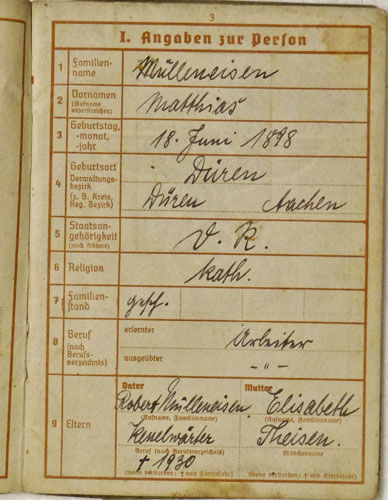 3
I. Angaben zur Person
1 Familien-
name
Mülleneisen
2 Vornamen
(Rufname
unterstreichen)
Matthias
3 Geburtstag,
-monat,
-jahr
18. Juni 1898
4 Geburtsort
Verwaltungs-
bezirk
(z. B. Kreis,
Reg. Bezirk)
Düren
Düren Aachen
5 Staatsan-
gehörigkeit
(auch frühere)
D. R.
6 Religion
kath.
7 Familien-
stand
gesch.
8 Beruf
(nach
Berufs-
verzeichnis)
erlernter
Arbeiter
ausgeübter
-"-
9 Eltern
Vater Mutter
Robert Mülleneisen Elisabeth
(Rufname, Familienname) (Rufname, Familienname)
Theisen.
Beruf (nach Berufsverzeichnis) Mädchenname
† 1930
(wenn verstorben: † und Sterbejahr) (wenn verstorben: † und Sterbejahr)